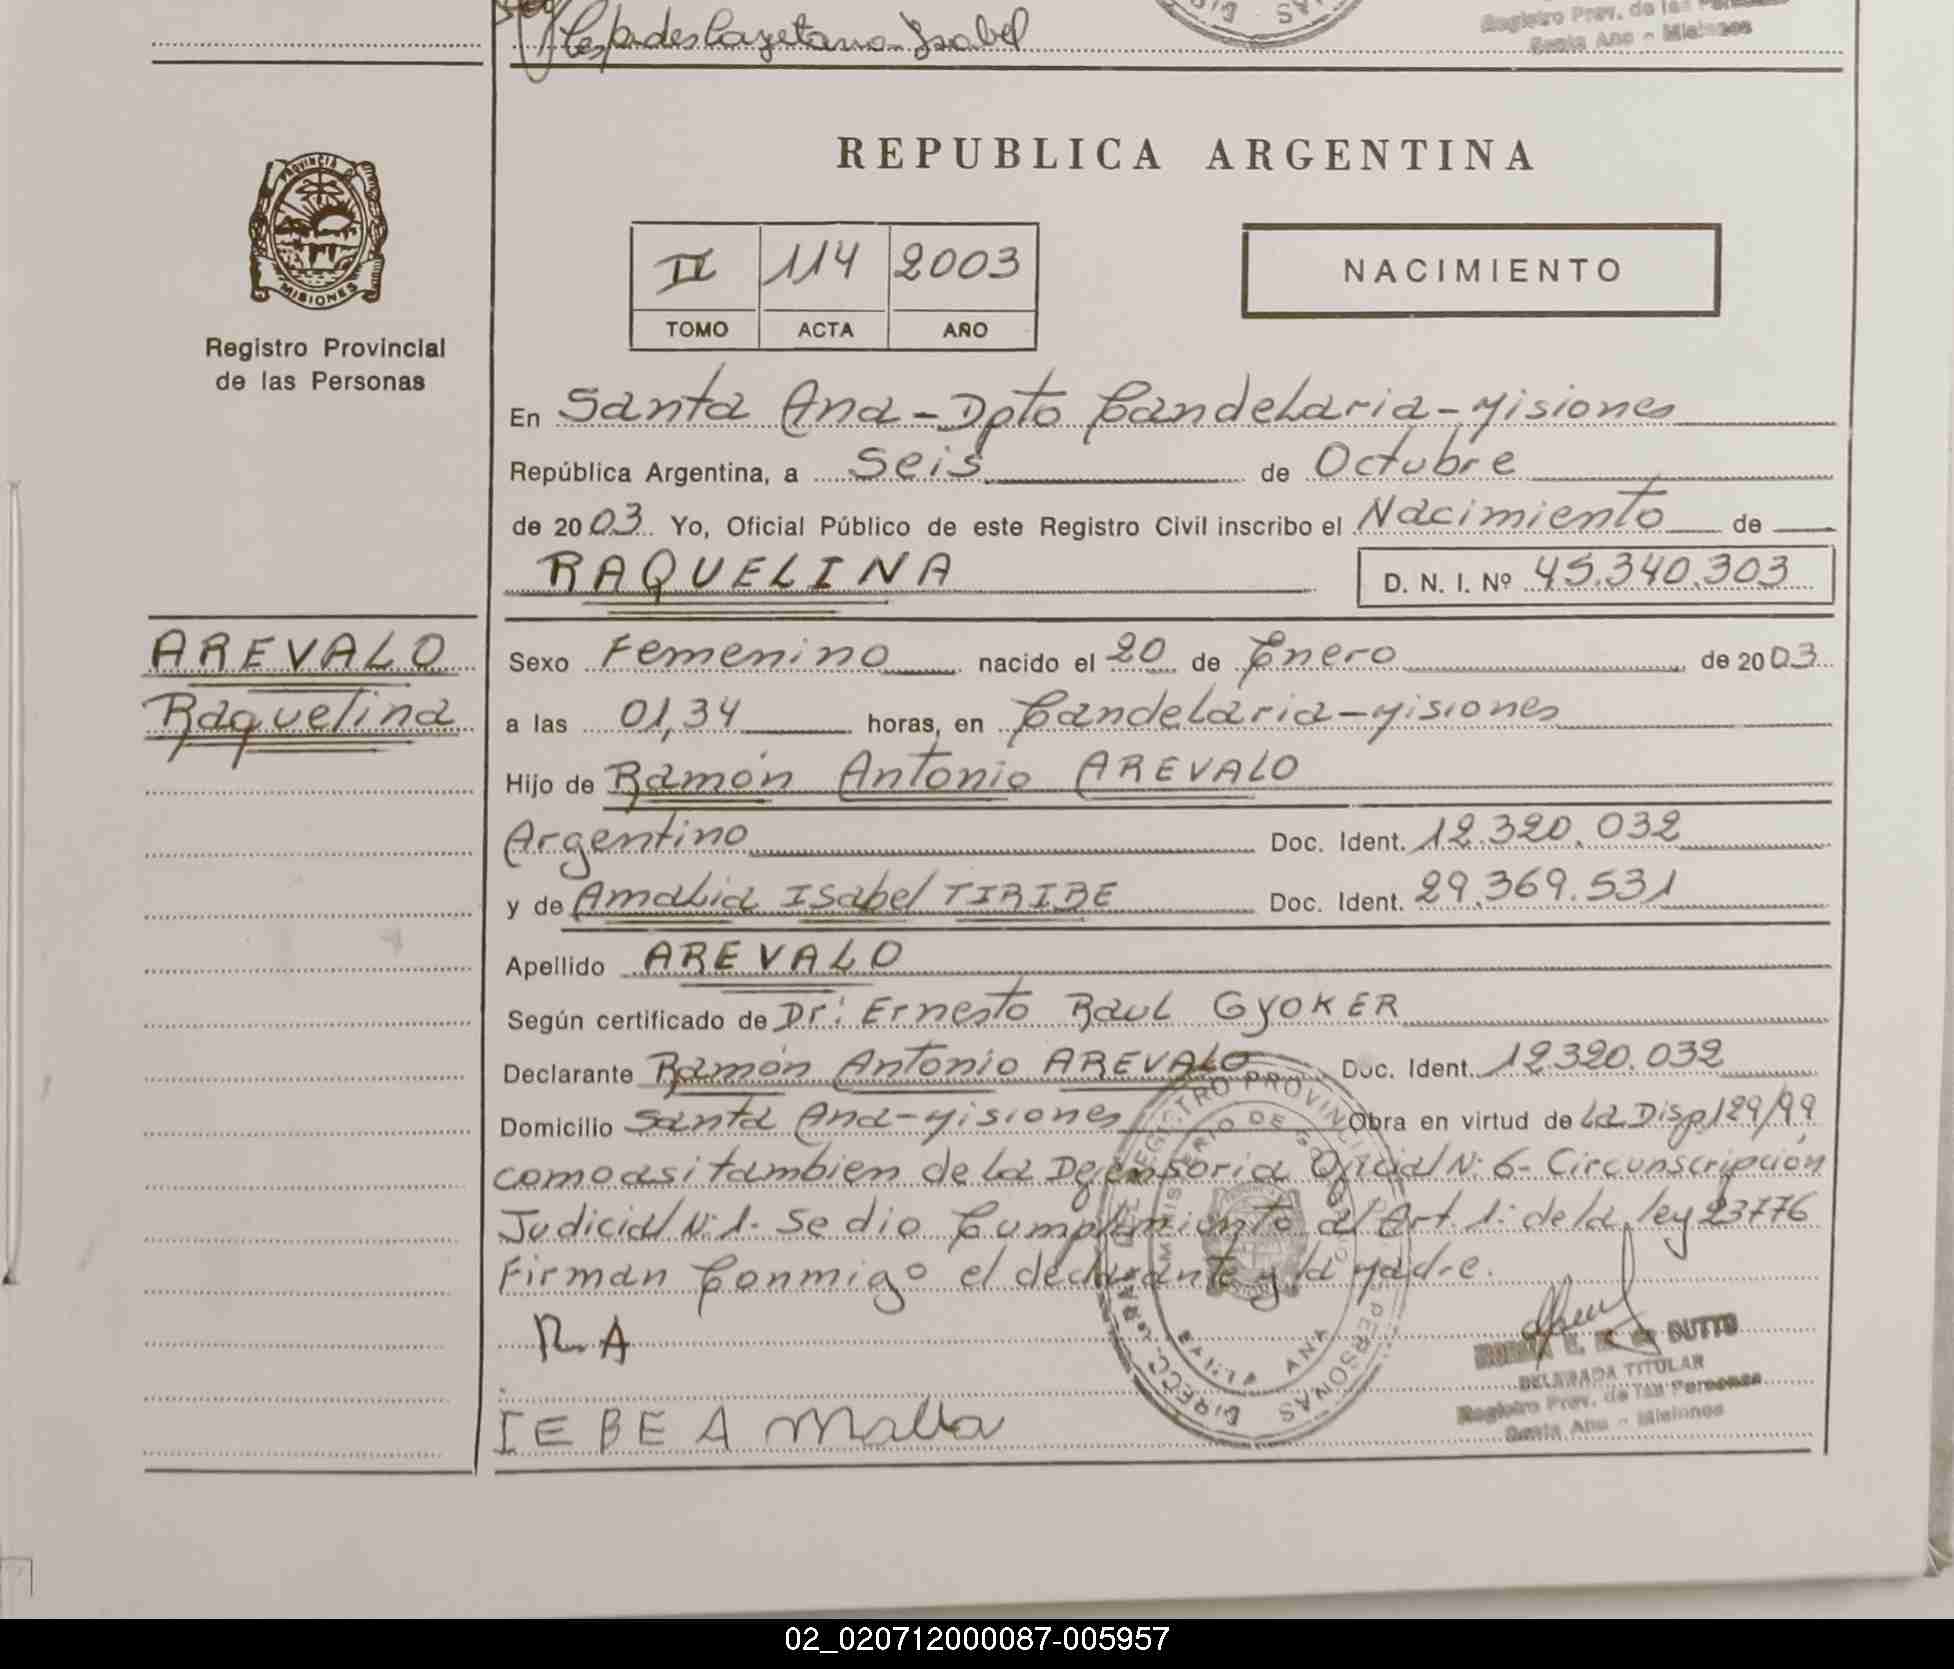 Cespedes Cayetana Isabel
Registro Prov. de las Personas
Santa Ana - Misiones
REPUBLICA ARGENTINA
PROVINCIA DE
MISIONES
Registro Provincial
de las Personas
II 114 2003
TOMO ACTA AÑO
NACIMIENTO
En Santa Ana - Dpto Candelaria - Misiones
República Argentina, a Seis de Octubre
de 2003 Yo, Oficial Público de este Registro Civil inscribo el Nacimiento de
RAQUELINA D. N. I. Nº 45.340.303
AREVALO
Raquelina
Sexo Femenino nacido el 20 de Enero de 2003
a las 01,34 horas, en Candelaria - Misiones
Hijo de Ramón Antonio AREVALO
Argentino Doc. Ident. 12.320.032
y de Amalia Isabel TIRIBE Doc. Ident. 29.369.531
Apellido AREVALO
Según certificado de Dr: Ernesto Raul GYOKER
Declarante Ramón Antonio AREVALO Doc. Ident. 12320.032
Domicilio Santa Ana - Misiones Obra en virtud de la Disp 129/99,
como asi tambien de la Defensoria Oficial N: 6 - Circunscripción
Judicial N: 1. Se dio Cumplimiento al Art. 1: de la ley 23776
Firman Conmigo el declarante y la Madre.
R. A
IEBE A Malla
DUTTO
DELEGADA TITULAR
Registro Prov. de las Personas
Santa Ana - Misiones
SANTA ANA
02_020712000087-005957